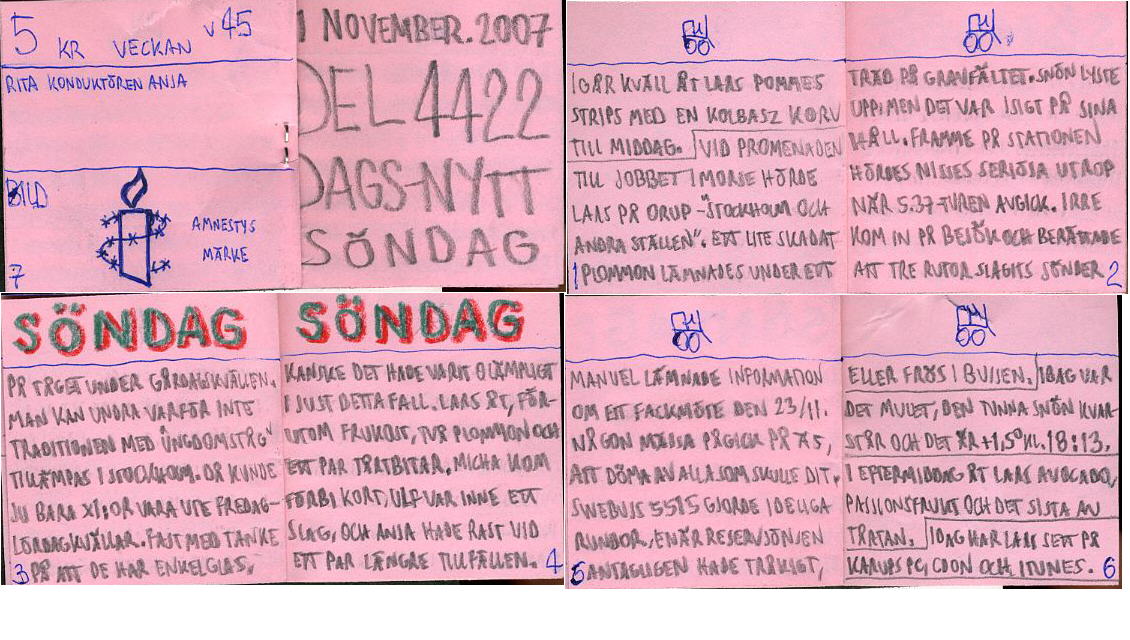 5 KR VECKAN V45
RITA KONDUKTÖREN ANJA
BILD
AMNESTYS
MÄRKE
7
1 NOVEMBER.2007
DEL 4422
DAGS-NYTT
SÖNDAG
IGÅR KVÄLL ÅT LARS POMMES
STRIPS MED EN KOLBASZ KORV
TILL MIDDAG. VID PROMENADEN
TILL JOBBET I MORSE HÖRDE
LARS PÅ ORUP -"STOCKHOLM OCH
ANDRA STÄLLEN". ETT LITE SKADAT
1 PLOMMON LÄMNADES UNDER ETT
TRÄD PÅ GRAVFÄLTET. SNÖN LYSTE
UPP, MEN DET VAR ISIGT PÅ SINA
HÅLL. FRAMME PÅ STATIONEN
HÖRDES NISSES SERIÖSA UTROP
NÄR 5.37-TUREN AVGICK. IRRE
KOM IN PÅ BESÖK OCH BERÄTTADE
ATT TRE RUTOR SLAGITS SÖNDER 2
SÖNDAG
PÅ TÅGET UNDER GÅRDAGSKVÄLLEN.
MAN KAN UNDRA VARFÖR INTE
TRADITIONEN MED "UNGDOMSTÅG"
TILLÄMPAS I STOCKHOLM. DÅ KUNDE
JU BARA X1:OR VARA UTE FREDAG-
LÖRDAGKVÄLLAR. FAST MED TANKE
3 PÅ ATT DE HAR ENKELGLAS,
SÖNDAG
KANSKE DET HADE VARIT OLÄMPLIGT
I JUST DETTA FALL. LARS ÅT, FÖR-
UTOM FRUKOST, TVÅ PLOMMON OCH
ETT PAR TÅRTBITAR. MICHA KOM
FÖRBI KORT, ULF VAR INNE ETT
SLAG, OCH ANJA HADE RAST VID
ETT PAR LÄNGRE TILLFÄLLEN. 4
MANUEL LÄMNADE INFORMATION
OM ETT FACKMÖTE DEN 23/11.
NÅGON MÄSSA PÅGICK PÅ Ä5,
ATT DÖMA AV ALLA SOM SKULLE DIT.
SWEBUS 5515 GJORDE IDELIGA
RUNDOR, ENÄR RESERVSONJEN
5 ANTAGLIGEN HADE TRÅKIGT,
ELLER FRÖS I BUSSEN. IDAG VAR
DET MULET, DEN TUNNA SNÖN KVAR-
STÅR OCH DET ÄR +1,5° KL. 18:13.
I EFTERMIDDAG ÅT LARS AVOCADO,
PASSIONSFRUKT OCH DET SISTA AV
TÅRTAN. IDAG HAR LARS SETT PÅ
KARUPS PC, CDON OCH ITUNES. 6